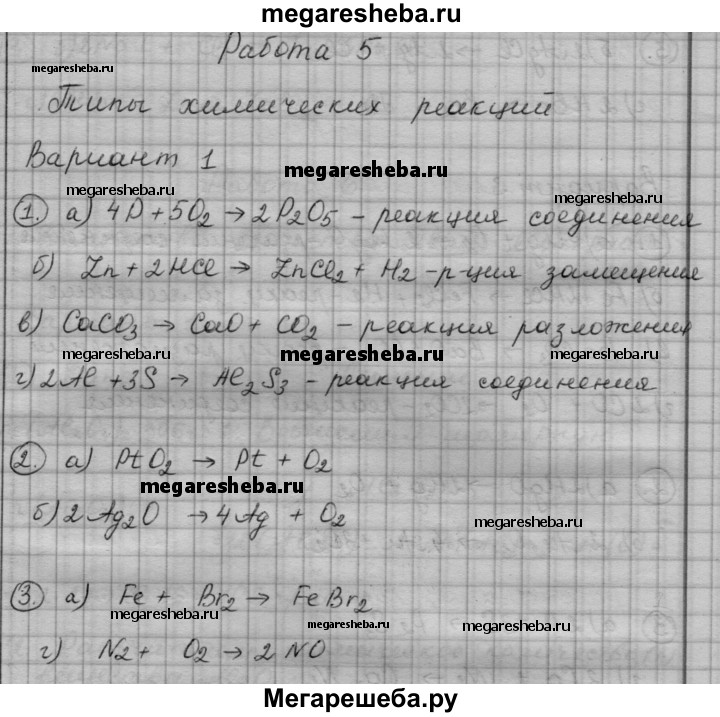 megaresheba.ru
Работа 5
megaresheba.ru
Типы химических реакций
Вариант 1
megaresheba.ru
megaresheba.ru
megaresheba.ru
1. а) 4P + 5O₂ → 2P₂O₅ – реакция соединения
б) Zn + 2HCl → ZnCl₂ + H₂ – р-ция замещения
в) CaCO₃ → CaO + CO₂ – реакция разложения
megaresheba.ru
megaresheba.ru
megaresheba.ru
г) 2Al + 3S → Al₂S₃ – реакция соединения
2. а) PtO₂ → Pt + O₂
megaresheba.ru
б) 2Ag₂O → 4Ag + O₂
megaresheba.ru
3. а) Fe + Br₂ → FeBr₂
megaresheba.ru
megaresheba.ru
г) N₂ + O₂ → 2NO
Мегарешеба.ру